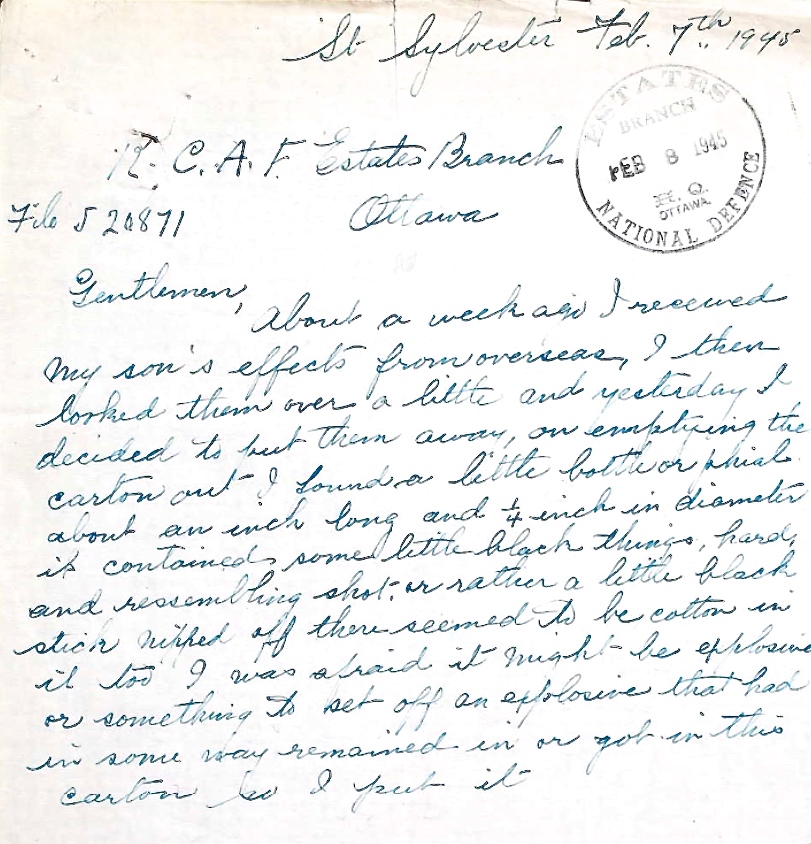 St Sylvester Feb. 7th 1945
ESTATES
BRANCH
FEB 8 1945
H. Q.
OTTAWA.
NATIONAL DEFENCE
R. C. A. F. Estates Branch
File J 20871 Ottawa
Gentlemen,
About a week ago I received
my son's effects from overseas, I then
looked them over a little and yesterday I
decided to put them away, on emptying the
carton out I found a little bottle or phial
about an inch long and 1/4 inch in diameter
it contained some little black things, hard,
and ressembling shot, or rather a little black
stick nipped off there seemed to be cotton in
it too I was afraid it might be explosive
or something to set off an explosive that had
in some way remained in or got in this
carton so I put it